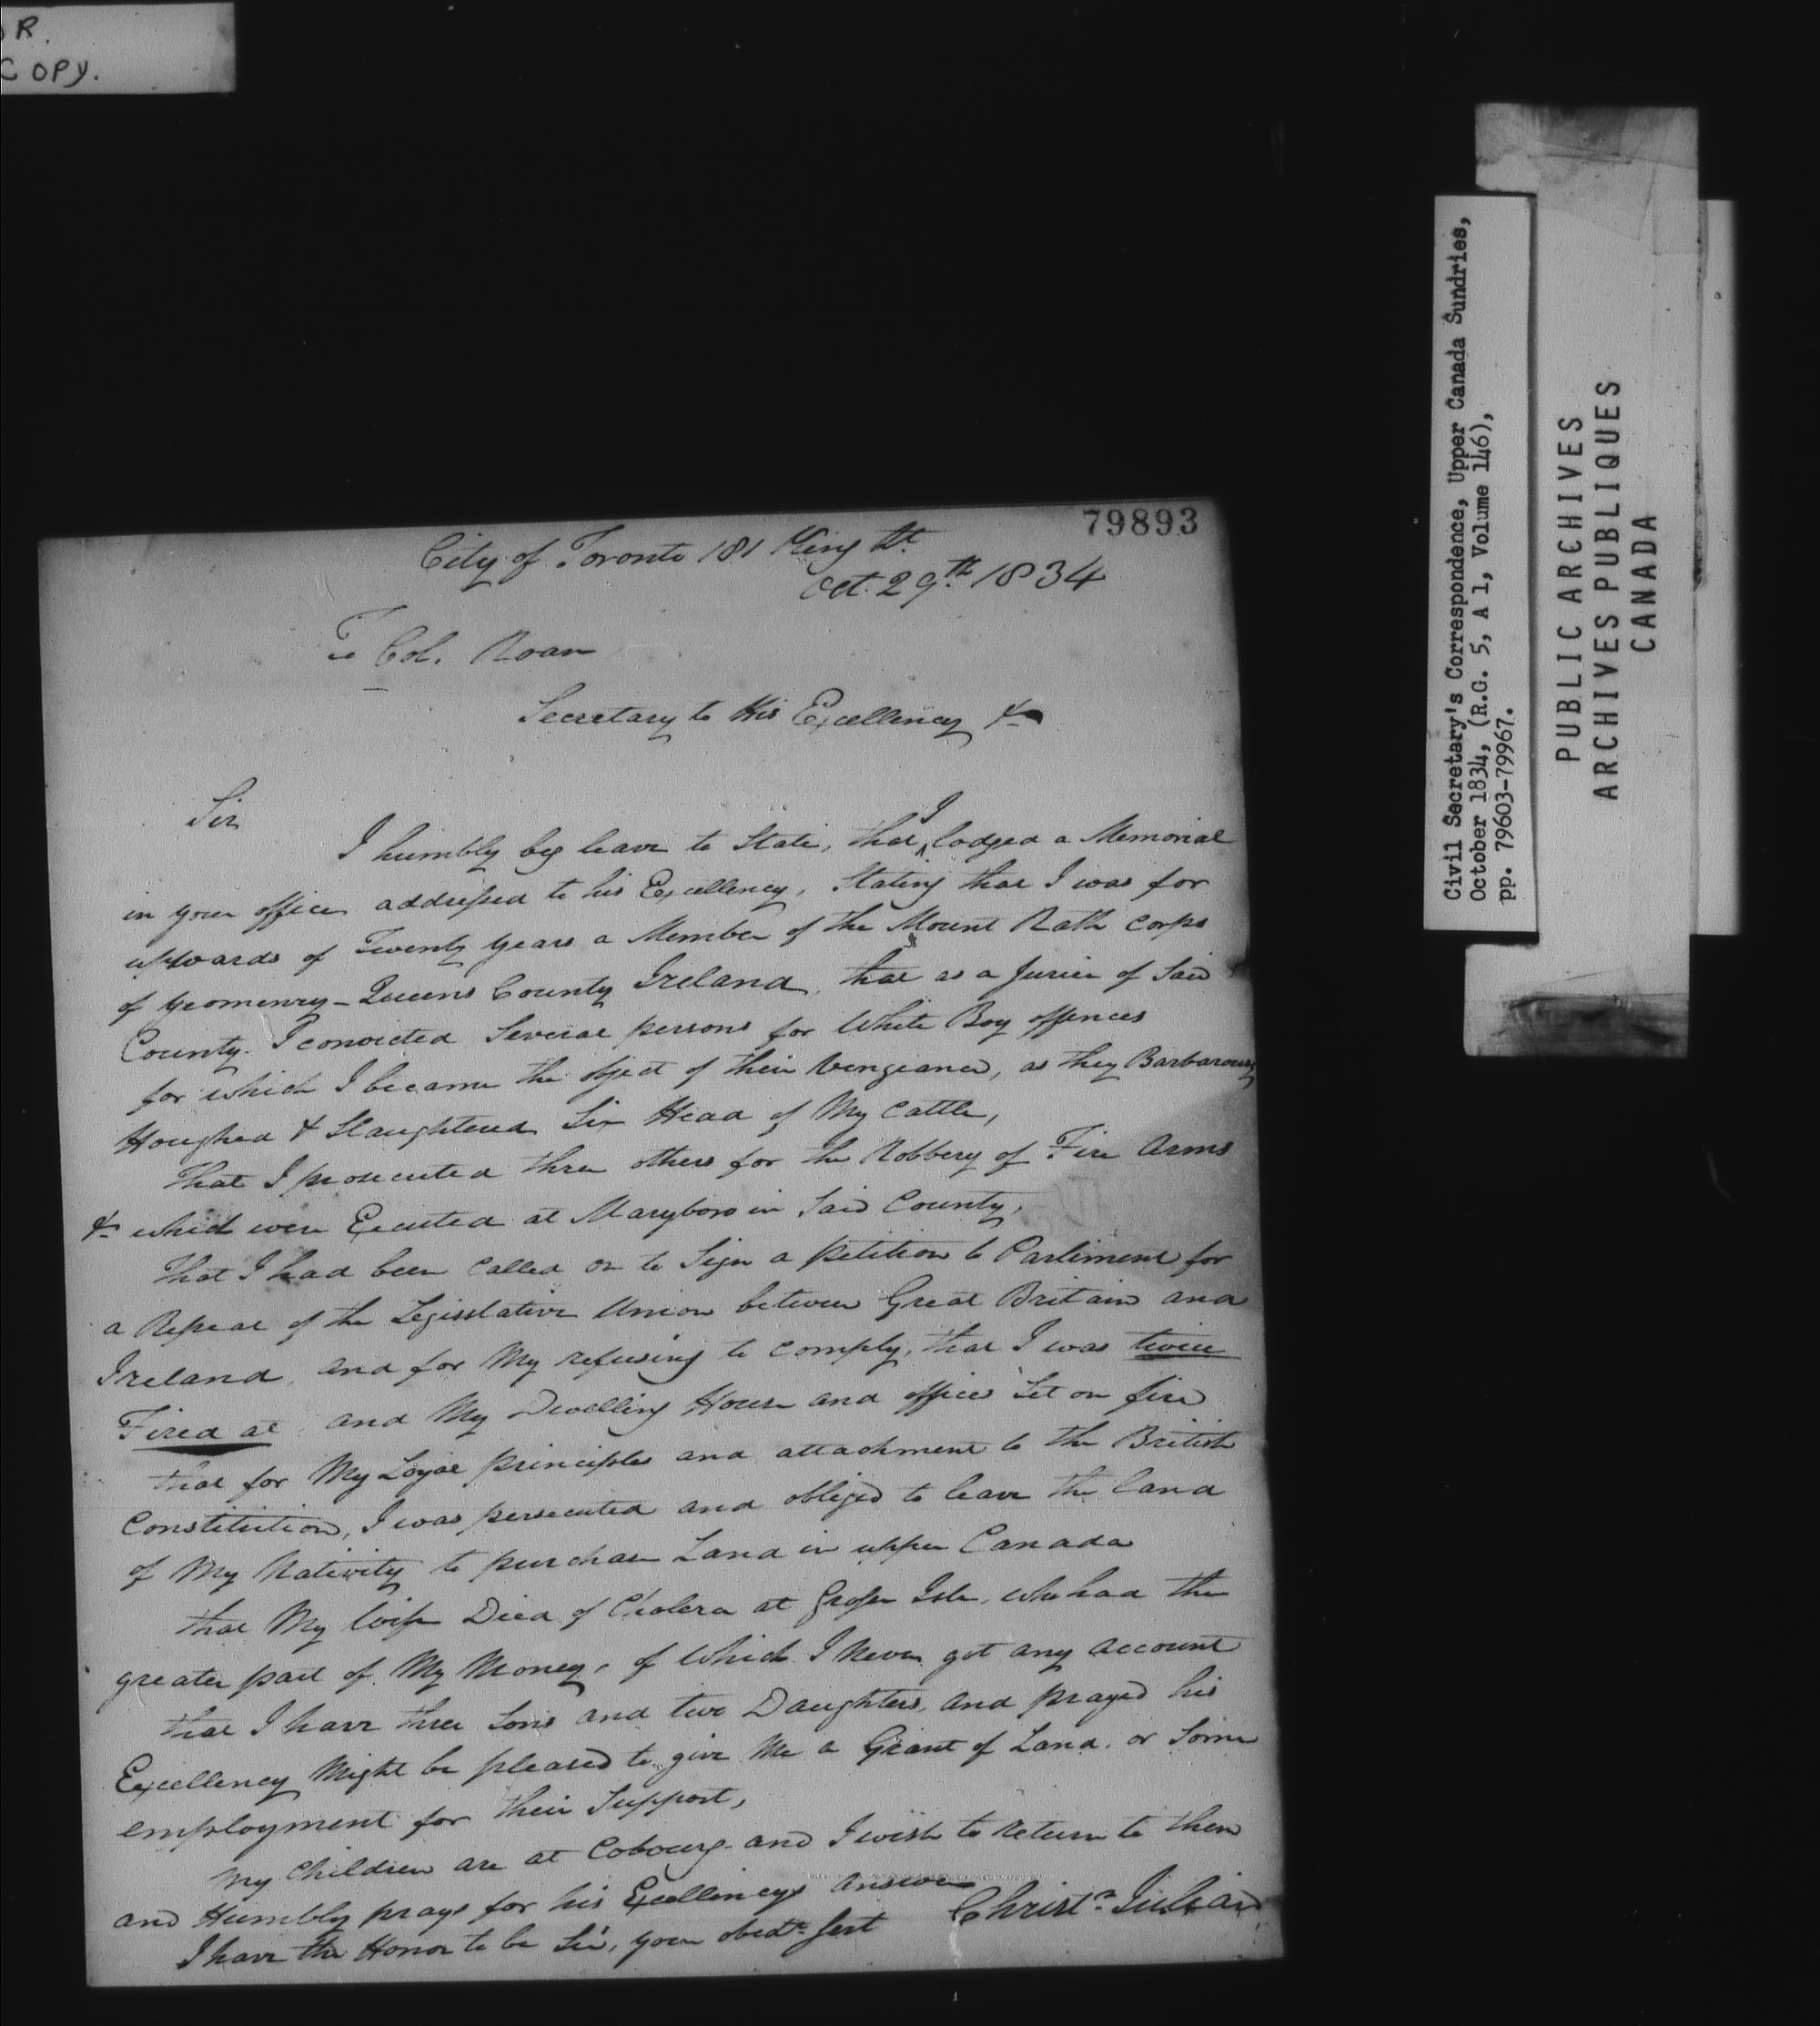 R.
COPY.
79893
City of Toronto 181 King St.
Oct. 29th 1834
To Col. Roan
Secretary to His Excellency &c
Sir
I humbly beg leave to State, that I lodged a Memorial
in your office addressed to his Excellency, Stating that I was for
upwards of Twenty years a Member of the Mount Rath Corps
of yeomenry - Queens County Ireland, that as a Jurier of Said
County. I convicted Several persons for White Boy offences
for which I became the object of their Vengeance, as they Barbarously
Houghed & Slaughtered Six Head of My Cattle,
That I prosecuted three others for the Robbery of Fire Arms
&c which were Executed at Maryboro in Said County,
That I had been Called on to Sign a petition to Parliment for
a Repeal of the Legislative Union between Great Britain and
Ireland, and for My refusing to comply, that I was twice
Fired at and My Dwelling House and offices Set on fire
that for My Loyal principles and attachment to the British
Constitution, I was persecuted and obliged to leave the land
of My Nativity to purchase Land in upper Canada
that My Wife Died of Cholera at Grosse Isle, who had the
greater part of My Money, of Which I Never got any account
that I have three Sons and two Daughters, and prayed his
Excellency Might be pleased to give Me a Grant of Land. or Some
employment for their Support,
My Children are at Cobourg and I wish to return to them
and Humbly prays for his Excellencys answer
I have the Honor to be Sir, your obedt. Sert Christr.
Civil Secretary's Correspondence, Upper Canada Sundries,
October 1834, (R.G. 5, A 1, Volume 146),
pp. 79603-79967.
PUBLIC ARCHIVES
ARCHIVES PUBLIQUES
CANADA